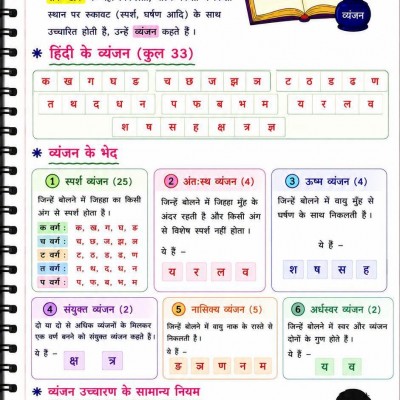 स्थान पर रुकावट (स्पर्श, घर्षण आदि) के साथ
उच्चारित होती है, उन्हें व्यंजन कहते हैं।
व्यंजन
* हिंदी के व्यंजन (कुल 33)
क ख ग घ ङ च छ ज झ ञ ट ठ ड ढ ण
त थ द ध न प फ ब भ म य र ल व
श ष स ह क्ष त्र ज्ञ
* व्यंजन के भेद
1 स्पर्श व्यंजन (25)
जिन्हें बोलने में जिहहा का किसी
अंग से स्पर्श होता है।
क वर्ग : क, ख, ग, घ, ङ
च वर्ग : च, छ, ज, झ, ञ
ट वर्ग : ट, ठ, ड, ढ, ण
त वर्ग : त, थ, द, ध, न
प वर्ग : प, फ, ब, भ, म
2 अंतःस्थ व्यंजन (4)
जिन्हें बोलने में जिहहा मुँह के
अंदर रहती है और किसी अंग
से विशेष स्पर्श नहीं होता।
ये हैं –
य र ल व
3 ऊष्म व्यंजन (4)
जिन्हें बोलने में वायु मुँह से
घर्षण के साथ निकलती है।
ये हैं –
श ष स ह
4 संयुक्त व्यंजन (2)
दो या दो से अधिक व्यंजनों के मिलकर
एक वर्ण बनने को संयुक्त व्यंजन कहते हैं।
ये हैं –
क्ष त्र
5 नासिक्य व्यंजन (5)
जिन्हें बोलने में वायु नाक के रास्ते से
निकलती है।
ये हैं –
ङ ञ ण न म
6 अर्धस्वर व्यंजन (2)
जिन्हें बोलने में स्वर और व्यंजन
दोनों के गुण होते हैं।
ये हैं –
य व
* व्यंजन उच्चारण के सामान्य नियम